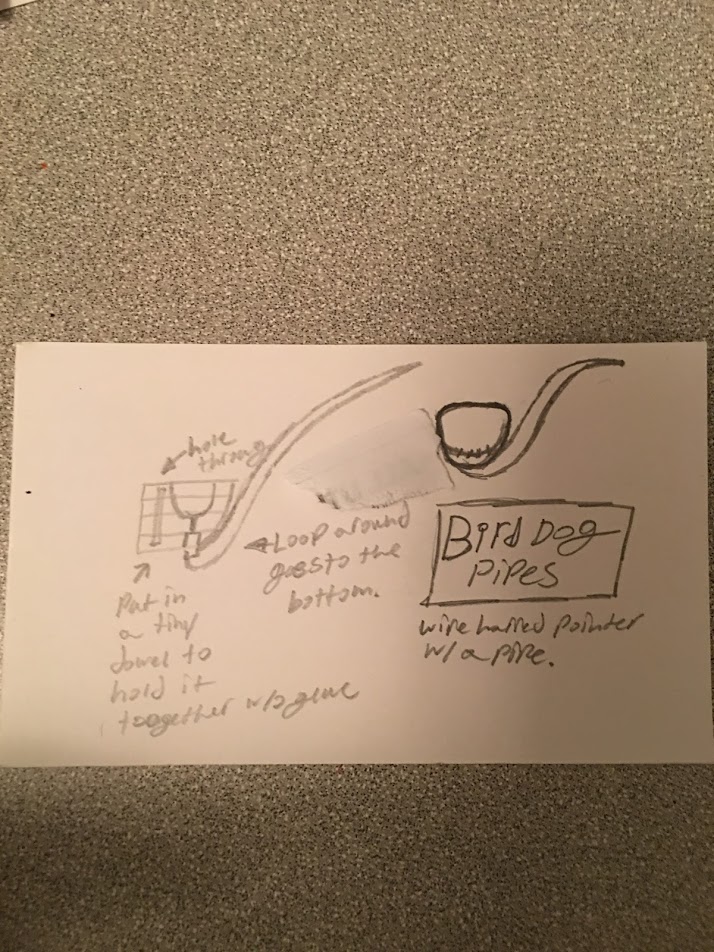 hole
through
Loop around
goes to the
bottom.
Put in
a tiny
dowel to
hold it
toogether w/o glue
Bird Dog
Pipes
wire haired pointer
w/ a pipe.